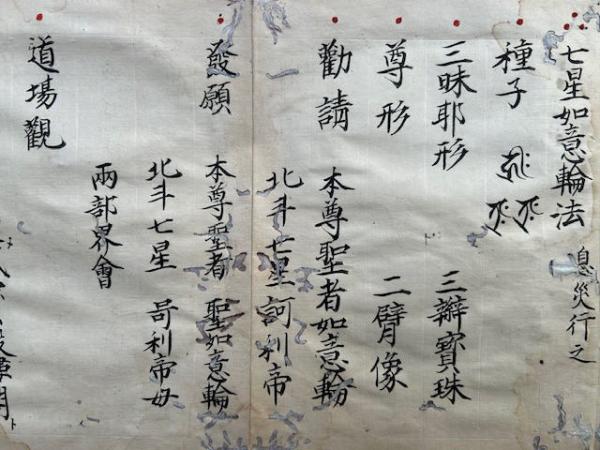 七星如意輪法 息災行之
種子
三昧耶形 三瓣寶珠
尊形 二臂像
勸請 本尊聖者如意輪
北斗七星訶利帝
發願 本尊聖者 聖如意輪
北斗七星 哥利帝母
兩部界會
道場觀